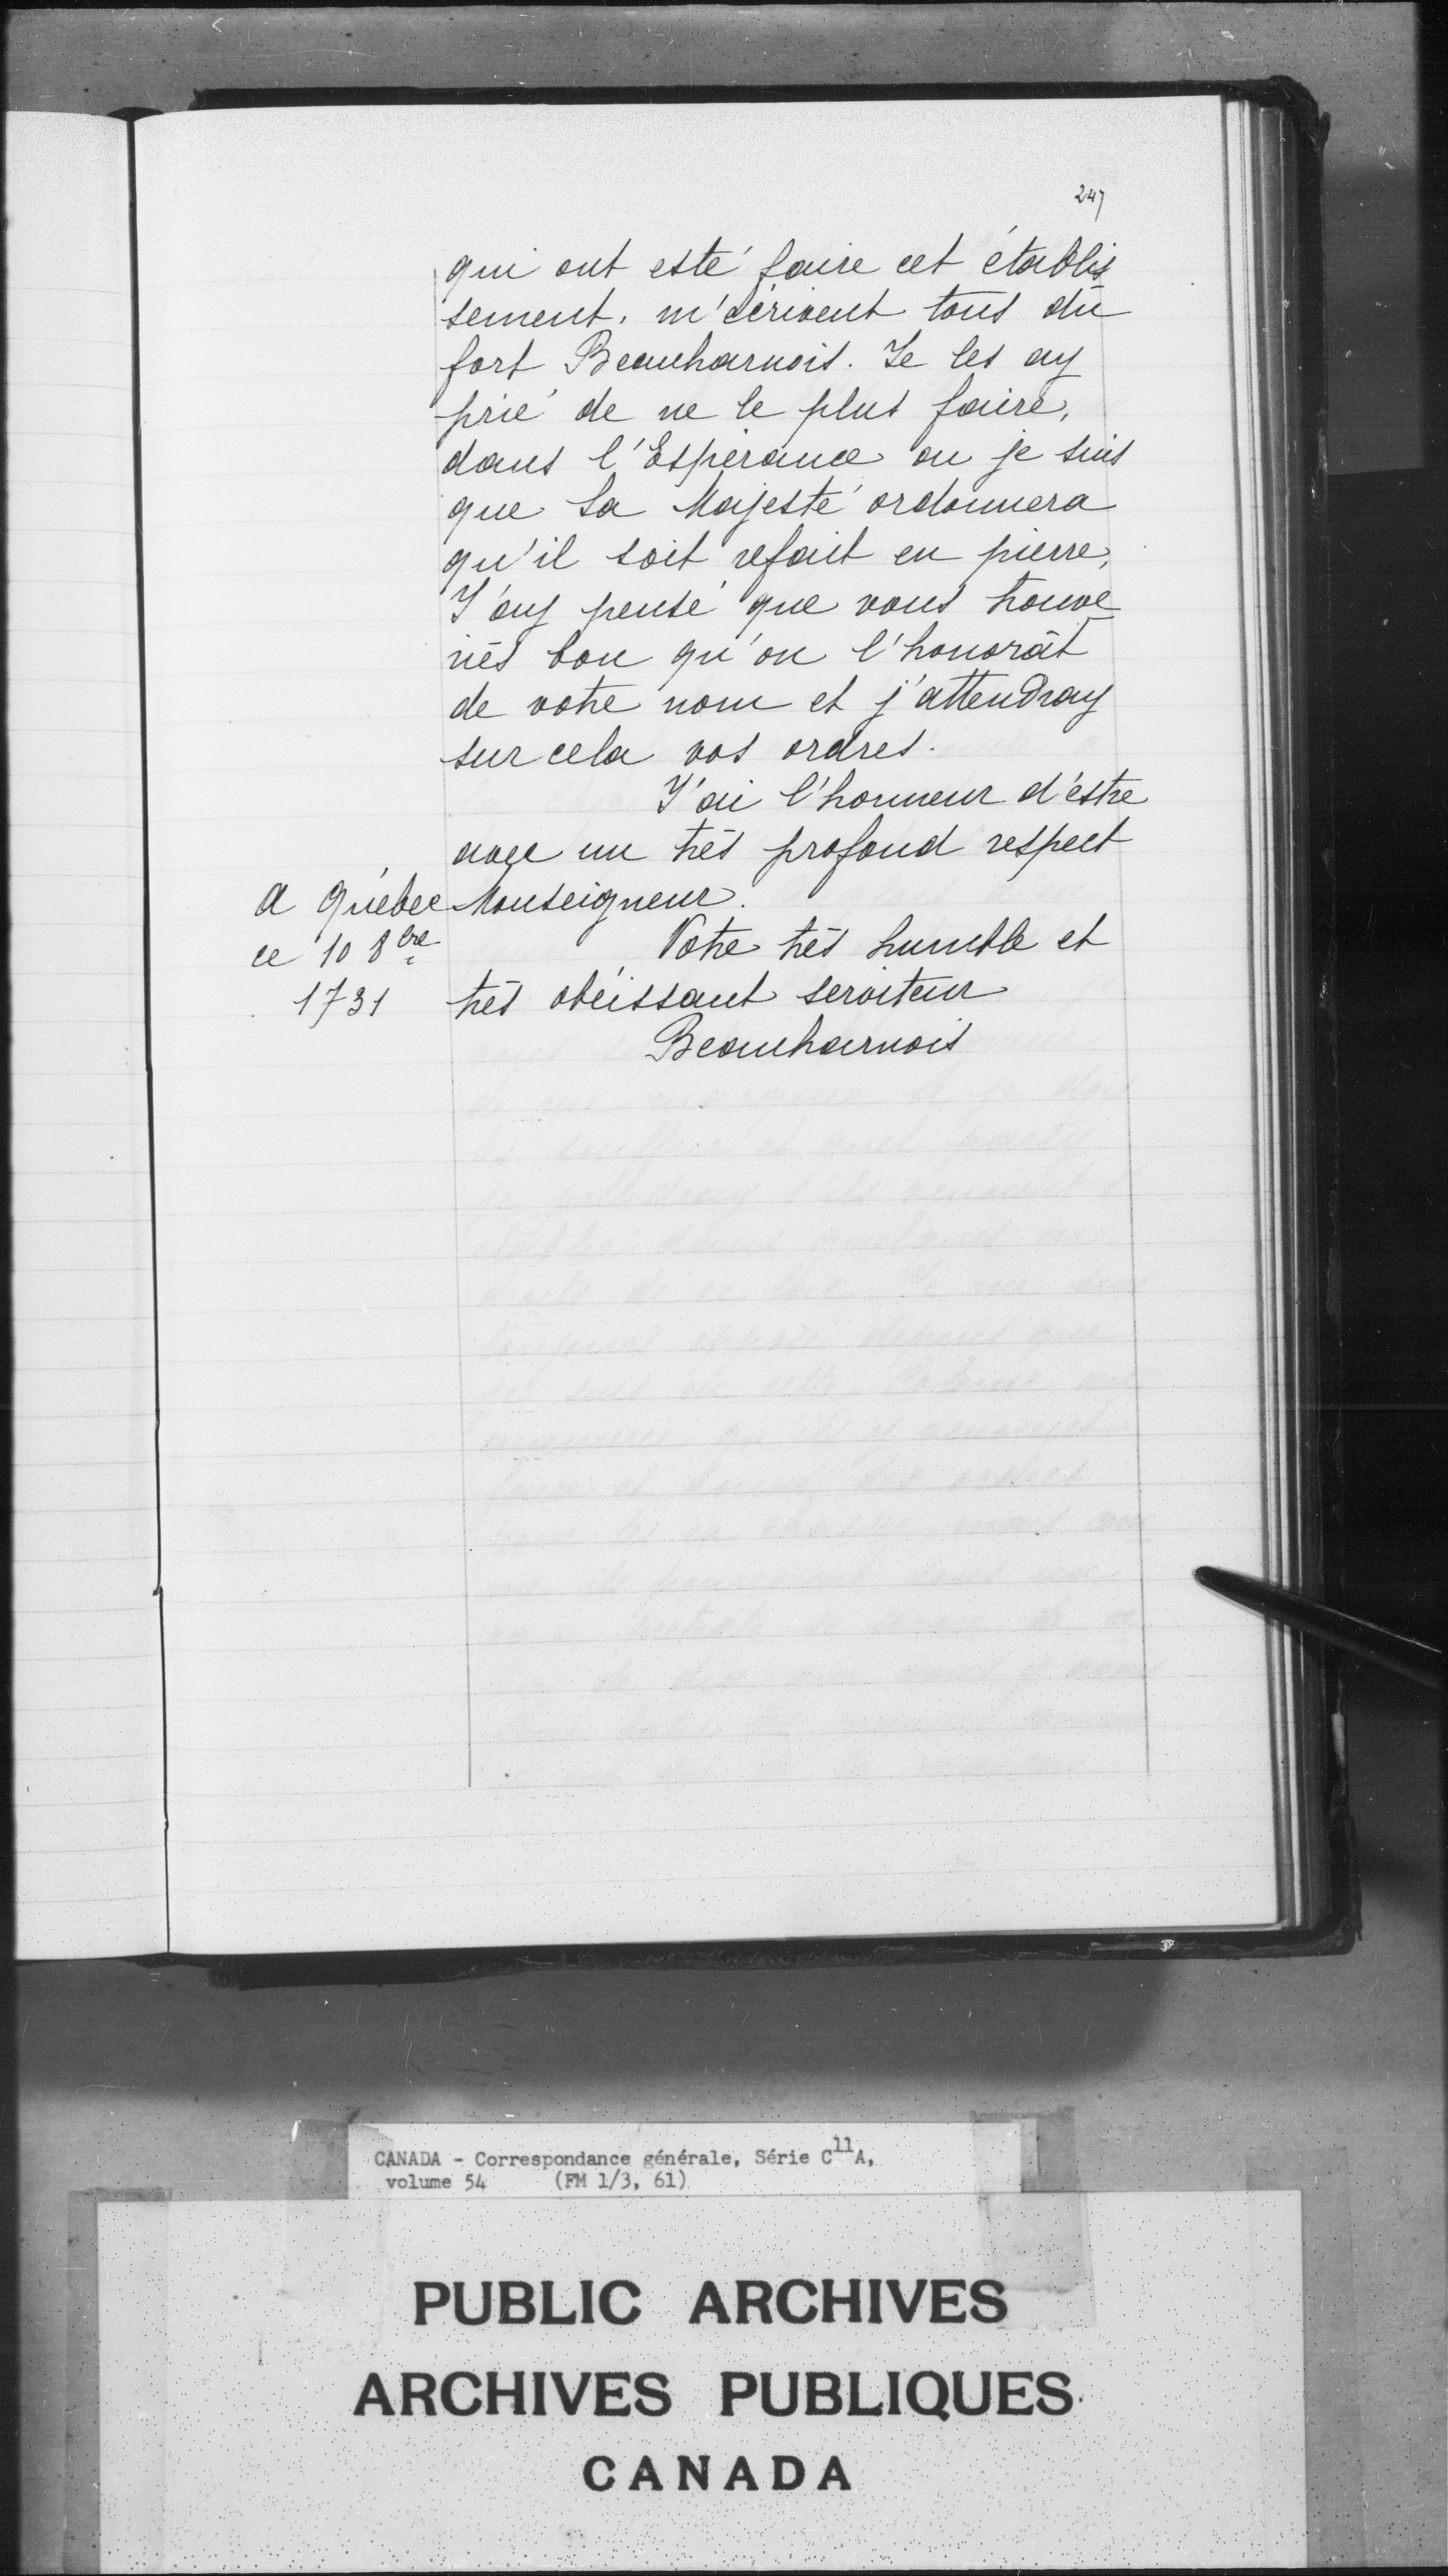 247
qui ont esté faire cet établis
sement, m'écrivent tous du
fort Beauharnois. Je les ay
prié de ne le plus faire,
dans l'Espérance ou je suis
que Sa Majesté ordonnera
qu'il soit refait en pierre,
J'ay pensé que vous trouve
riés bon qu'on l'honorât
de votre nom et j'attendray
sur cela vos ordres.
J'ai l'honneur d'estre
avec un très profond respect
Monseigneur.
a Québec
ce 10 8bre
1731
Votre très humble et
très obéissant serviteur
Beauharnois
CANADA - Correspondance générale, Série C11A,
volume 54 (FM 1/3, 61)
PUBLIC ARCHIVES
ARCHIVES PUBLIQUES
CANADA